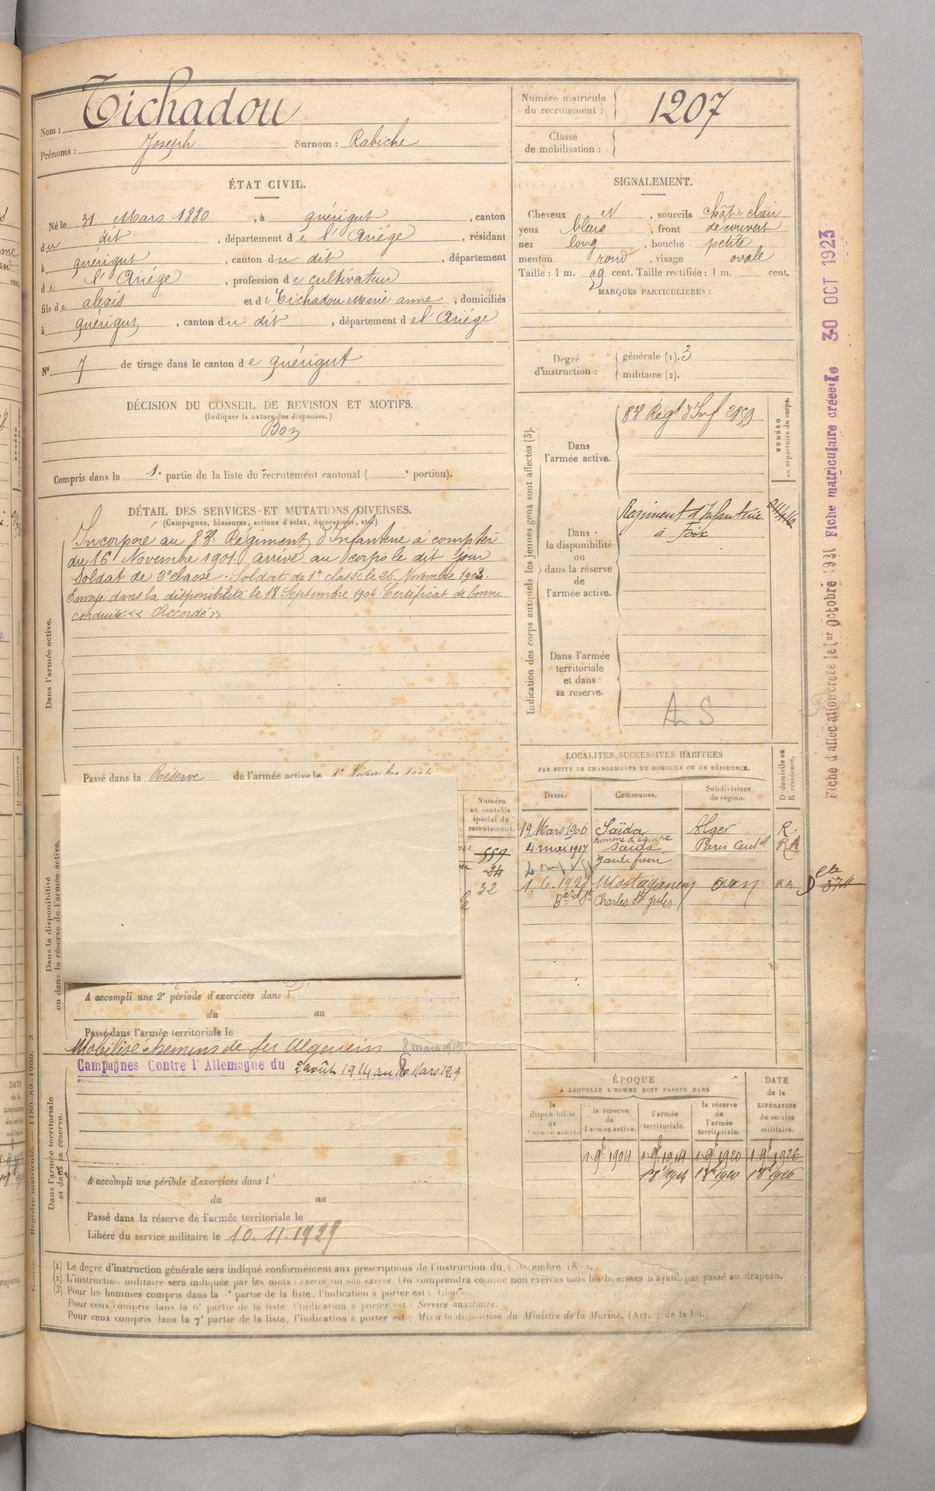 Nom : Tichadou
Prénoms : Joseph Surnom : Rabiche
Numéro matricule du recrutement : 1207
Classe de mobilisation :
ÉTAT CIVIL.
Né le 31 Mars 1880, à quérigut, canton
du dit, département de l'Ariége, résidant
à quérigut, canton du dit, département
de l'Ariége, profession de cultivateur
fils de alexis et de Tichadou Marie anne, domiciliés
à quérigut, canton du dit, département de l'Ariége
N° 7 de tirage dans le canton de quérigut
SIGNALEMENT.
Cheveux N, sourcils chât. clair
yeux bleus, front découvert
nez long, bouche petite
menton rond, visage ovale
Taille : 1 m. cent. Taille rectifiée : 1 m. cent.
MARQUES PARTICULIÈRES :
Degré d'instruction : générale (1). 3
militaire (2).
DÉCISION DU CONSEIL DE REVISION ET MOTIFS.
(Indiquer la nature des dispenses.)
Bon
Compris dans la 1. partie de la liste du recrutement cantonal ( portion).
DÉTAIL DES SERVICES ET MUTATIONS DIVERSES.
(Campagnes, blessures, actions d'éclat, décorations, etc.)
Incorporé au 83e Régiment d'Infanterie à compter
du 16 Novembre 1901. arrivé au corps le dit jour
Soldat de 2e classe. Soldat de 1e classe le 25 Novembre 1903.
Envoyé dans la disponibilité le 18 Septembre 1904 Certificat de bonne
conduite "Accordé".
Dans l'armée active.
Passé dans la Réserve de l'armée active le
Indication des corps auxquels les jeunes gens sont affectés (3).
NUMÉRO au répertoire du corps.
Dans l'armée active.
83e Regt d'Inf
Dans la disponibilité ou dans la réserve de l'armée active.
Regiment d'Infanterie
à Foix
Dans l'armée territoriale et dans sa reserve.
A S
Fiche d'affectation créée le 1er octobre Fiche matriculaire créée le 30 OCT 1923
LOCALITÉS SUCCESSIVES HABITÉES
PAR SUITE DE CHANGEMENTS DE DOMICILE OU DE RÉSIDENCE.
Dates. Communes. Subdivisions de région. D domicile ou R résidence.
19 Mars 1906 Saïda Alger R.
4 mai 1917 Saïda
Mostaganem oran
Charles St Jules
Numéro au contrôle spécial du recrutement.
559
34
32
Dans la disponibilité ou dans la réserve de l'armée active.
A accompli une 2e période d'exercices dans l'
du au
Passé dans l'armée territoriale le
Mobilisé chemins de fer Algeriens
Campagnes Contre l'Allemagne du 2 août 1914 au 8 Mars 1919
Dans l'armée territoriale et dans sa réserve.
A accompli une période d'exercices dans l'
du au
Passé dans la réserve de l'armée territoriale le
Libéré du service militaire le 10.11.1929
ÉPOQUE
A LAQUELLE L'HOMME DOIT PASSER DANS
DATE de la LIBÉRATION du service militaire.
la disponibilité de l'armée active.
la réserve de l'armée active.
l'armée territoriale.
la réserve de l'armée territoriale.
1 9e 1904 1 9e 1914 1 9e 1920 1 9e 1926
(1) Le degré d'instruction générale sera indiqué conformément aux prescriptions de l'instruction du 4 décembre
(2) L'instruction militaire sera indiquée par les mots : exercé ou non exercé. On comprendra comme non exercés tous les hommes n'ayant pas passé au drapeau.
(3) Pour les hommes compris dans la partie de la liste, l'indication à porter est :
Pour ceux compris dans la 6e partie de la liste, l'indication à porter est : Service auxiliaire.
Pour ceux compris dans la 7e partie de la liste, l'indication à porter est : Mis à la disposition du Ministre de la Marine. (Art. de la loi.)